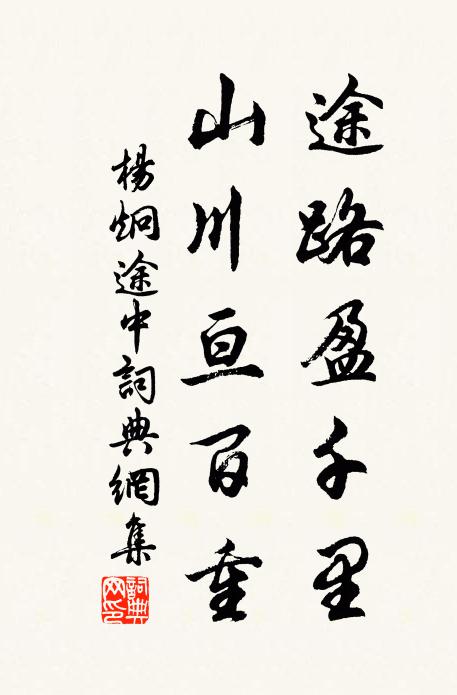 途路盈千里
山川亘百重
楊炯途中詞典網集
詞典网印